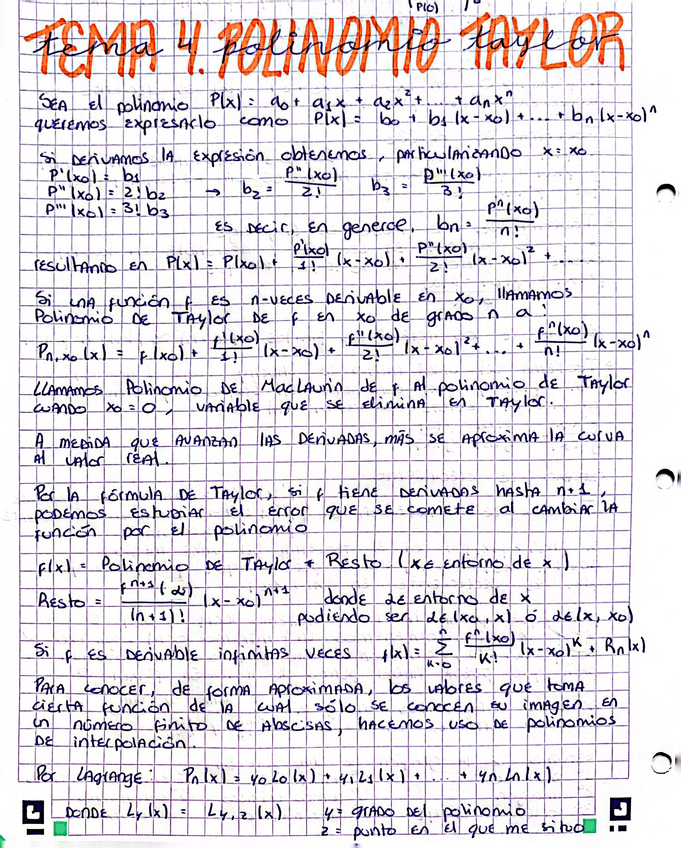 P(0)
TEMA 4. POLINOMIO TAYLOR
tema 4. polinomio taylor
SEA el polinomio P(x) = a₀ + a₁x + a₂x² + ... + aₙxⁿ
queremos expresarlo como P(x) = b₀ + b₁(x-x₀) + ... + bₙ(x-x₀)ⁿ
Si derivamos la expresión obtenemos, particularizando x = x₀
P'(x₀) = b₁
P''(x₀) = 2! b₂ → b₂ = P''(x₀)/2! b₃ = P'''(x₀)/3!
P'''(x₀) = 3! b₃
es decir, en general, bₙ = Pⁿ(x₀)/n!
resultando en P(x) = P(x₀) + P'(x₀)/1! (x-x₀) + P''(x₀)/2! (x-x₀)² + ...
Si una función f es n-veces derivable en x₀, llamamos
Polinomio de Taylor de f en x₀ de grado n a:
Pₙ,ₓ₀(x) = f(x₀) + f'(x₀)/1! (x-x₀) + f''(x₀)/2! (x-x₀)² + ... + fⁿ(x₀)/n! (x-x₀)ⁿ
Llamamos Polinomio de MacLaurin de f al polinomio de Taylor
cuando x₀ = 0, variable que se elimina en Taylor.
A medida que avanzan las derivadas, más se aproxima la curva
al valor real.
Por la fórmula de Taylor, si f tiene derivadas hasta n+1,
podemos estudiar el error que se comete al cambiar la
función por el polinomio
f(x) = Polinomio de Taylor + Resto (x ∈ entorno de x)
Resto = fⁿ⁺¹(α)/(n+1)! (x-x₀)ⁿ⁺¹ donde α ∈ entorno de x
pudiendo ser α ∈ (x₀, x) ó α ∈ (x, x₀)
Si f es derivable infinitas veces f(x) = Σ n k=0 fⁿ(x₀)/k! (x-x₀)ᵏ + Rₙ(x)
Para conocer, de forma aproximada, los valores que toma
cierta función de la cual sólo se conocen su imagen en
un número finito de abscisas, hacemos uso de polinomios
de interpolación.
Por Lagrange: Pₙ(x) = y₀L₀(x) + y₁L₁(x) + ... + yₙLₙ(x)
donde Ly(x) = Ly,z(x) y = grado del polinomio
z = punto en el que me sitúo